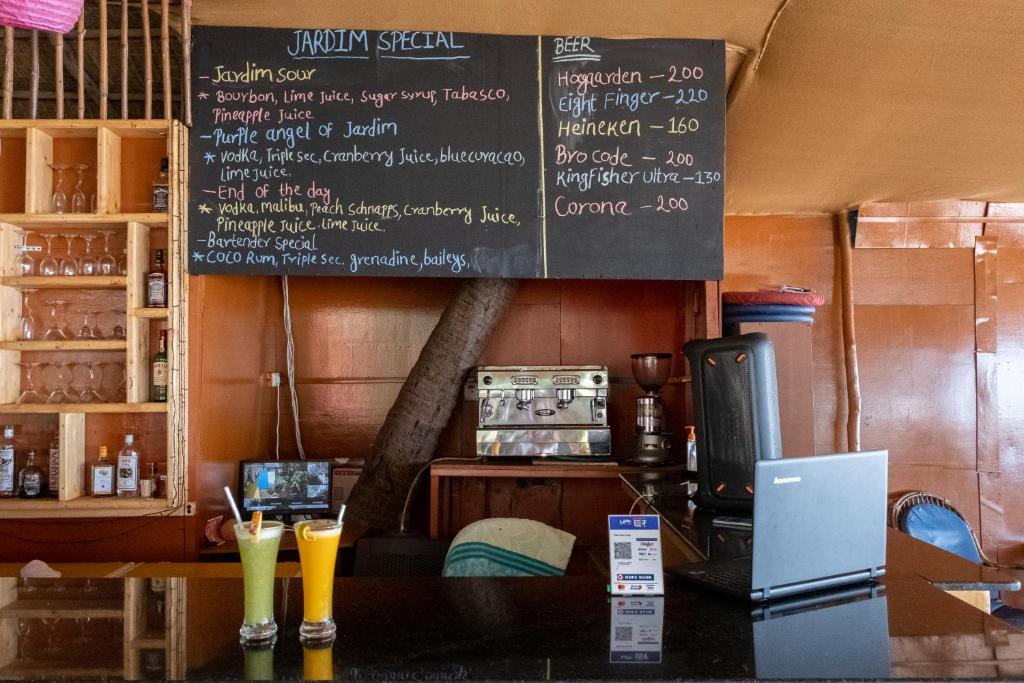 JARDIM SPECIAL
- Jardim Sour
* Bourbon, Lime Juice, Sugar Syrup, Tabasco,
Pineapple Juice
- Purple angel of Jardim
* Vodka, Triple sec, Cranberry Juice, blue curacao,
Lime juice.
- End of the day
* Vodka, Malibu, Peach Schnapps, Cranberry Juice,
Pineapple Juice. Lime Juice.
- Bartender Special
* COCO Rum, Triple Sec, grenadine, baileys,
BEER
Hoggarden - 200
Eight Finger - 220
Heineken - 160
Bro code - 200
Kingfisher Ultra - 130
Corona - 200
lenovo
UPI
HDFC BANK